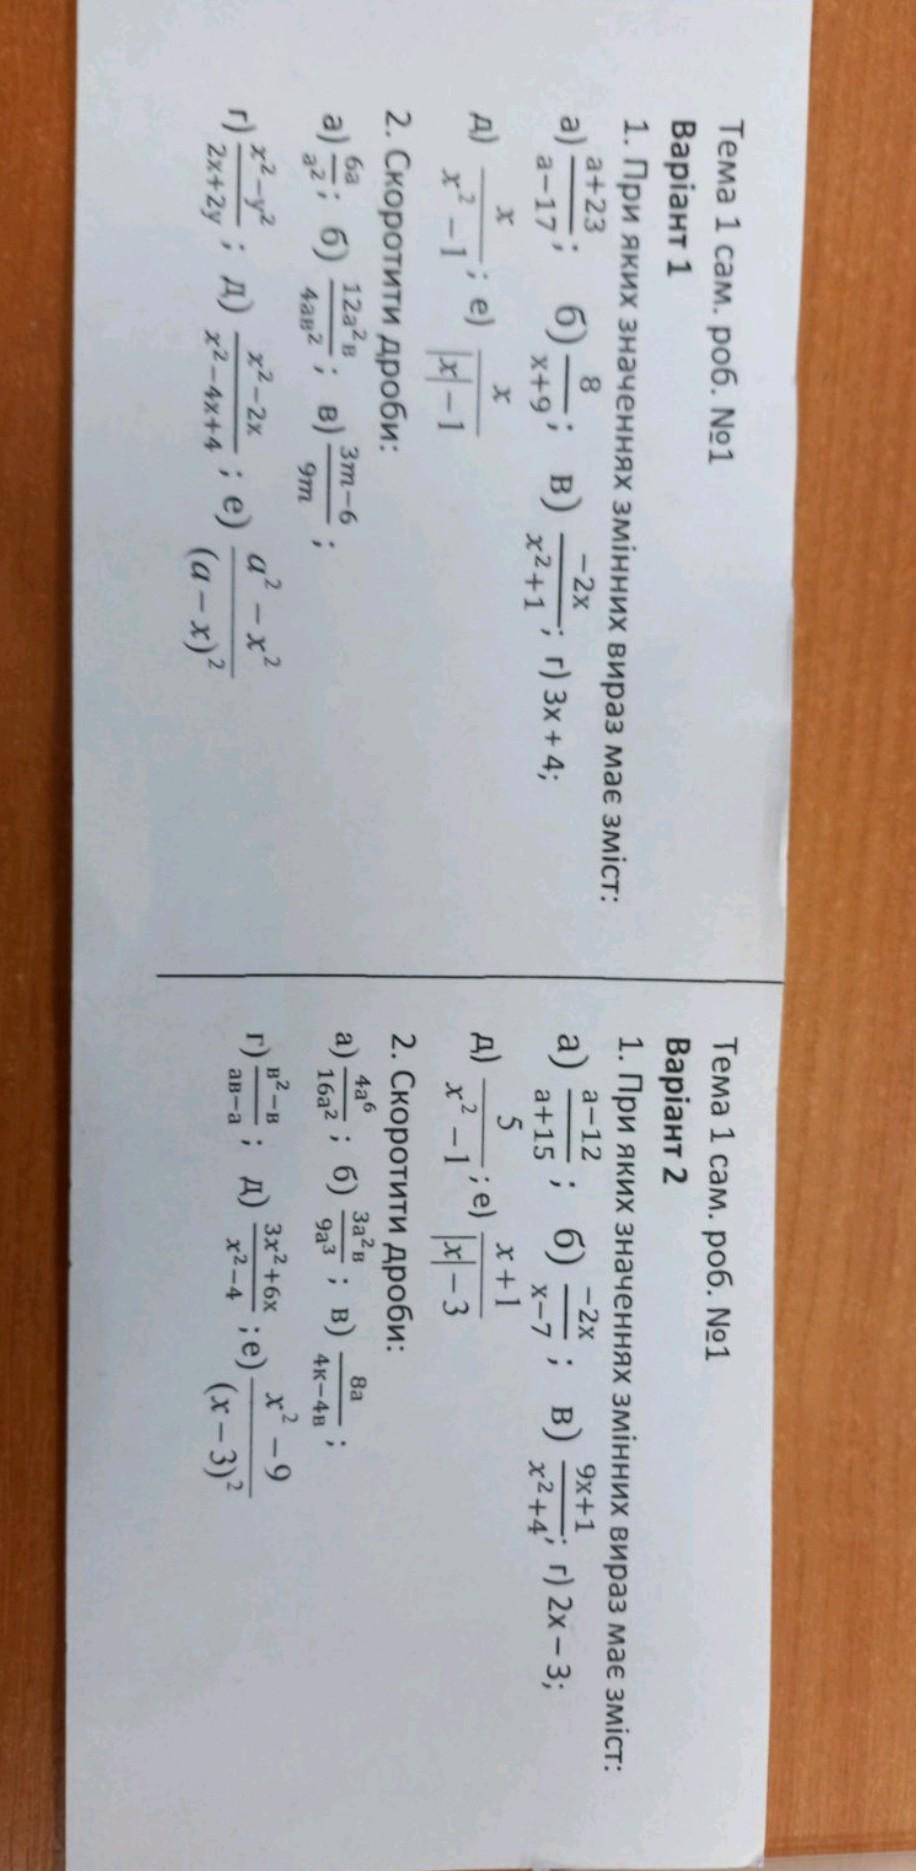 Тема 1 сам. роб. №1
Варіант 1
1. При яких значеннях змінних вираз має зміст:
а) (а+23)/(а−17); б) 8/(х+9); в) −2х/(х²+1); г) 3х + 4;
д) x/(x² − 1); е) x/(|x| − 1)
2. Скоротити дроби:
а) 6а/а²; б) 12а²в/4ав²; в) (3m−6)/9m;
г) (х²−у²)/(2х+2у); д) (х²−2х)/(х²−4х+4); е) (a² − x²)/(a − x)²
Тема 1 сам. роб. №1
Варіант 2
1. При яких значеннях змінних вираз має зміст:
а) (а−12)/(а+15); б) −2х/(х−7); в) (9х+1)/(х²+4); г) 2х − 3;
д) 5/(x² − 1); е) (x + 1)/(|x| − 3)
2. Скоротити дроби:
а) 4а⁶/16а²; б) 3а²в/9а³; в) 8а/(4к−4в);
г) (в²−в)/(ав−а); д) (3х²+6х)/(х²−4); е) (x² − 9)/(x − 3)²